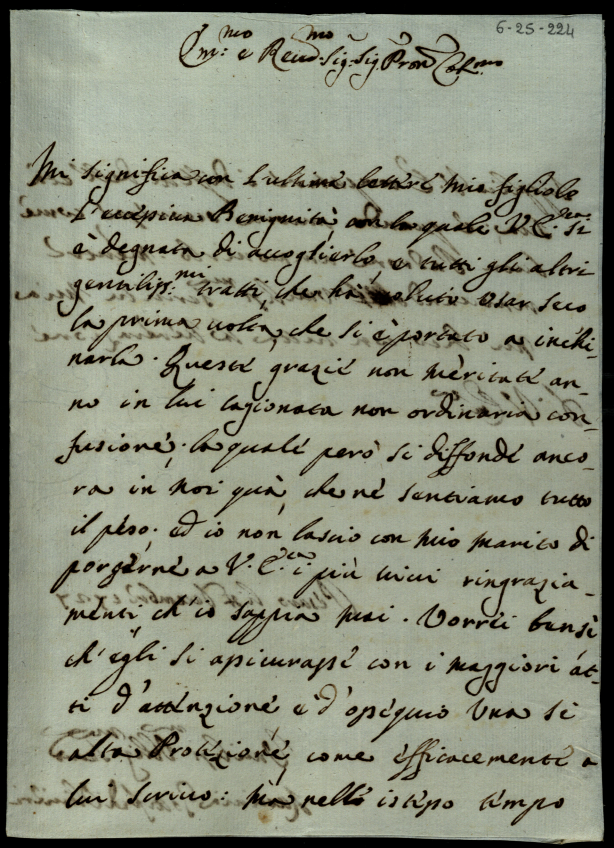 6-25-224
Em:mo e Revd.mo Sig:r Sig:r Pron Col:mo
Mi significa con l'ultime lettere mio figliolo
l'eccessiva Benignità, con la quale V.E.za si
è degnata di accoglierlo, e tutti gli altri
gentiliss:mi tratti, che ha voluto usar seco
la prima volta, che si è portato a inchi-
narla. Queste grazie non meritate an-
no in lui cagionata non ordinaria con-
fusione, la quale però si diffonde anco-
ra in noi quà, che ne sentiamo tutto
il peso, ed io non lascio con mio marito di
porgerne a V.E.za i più vivi ringrazia-
menti ch'io sappia mai. Vorrei bensì
ch'egli si assicurasse con i maggiori at-
ti d'attenzione e d'ossequio una sì
alta Protezione, come efficacemente a
lui scrivo: ma nello istesso tempo